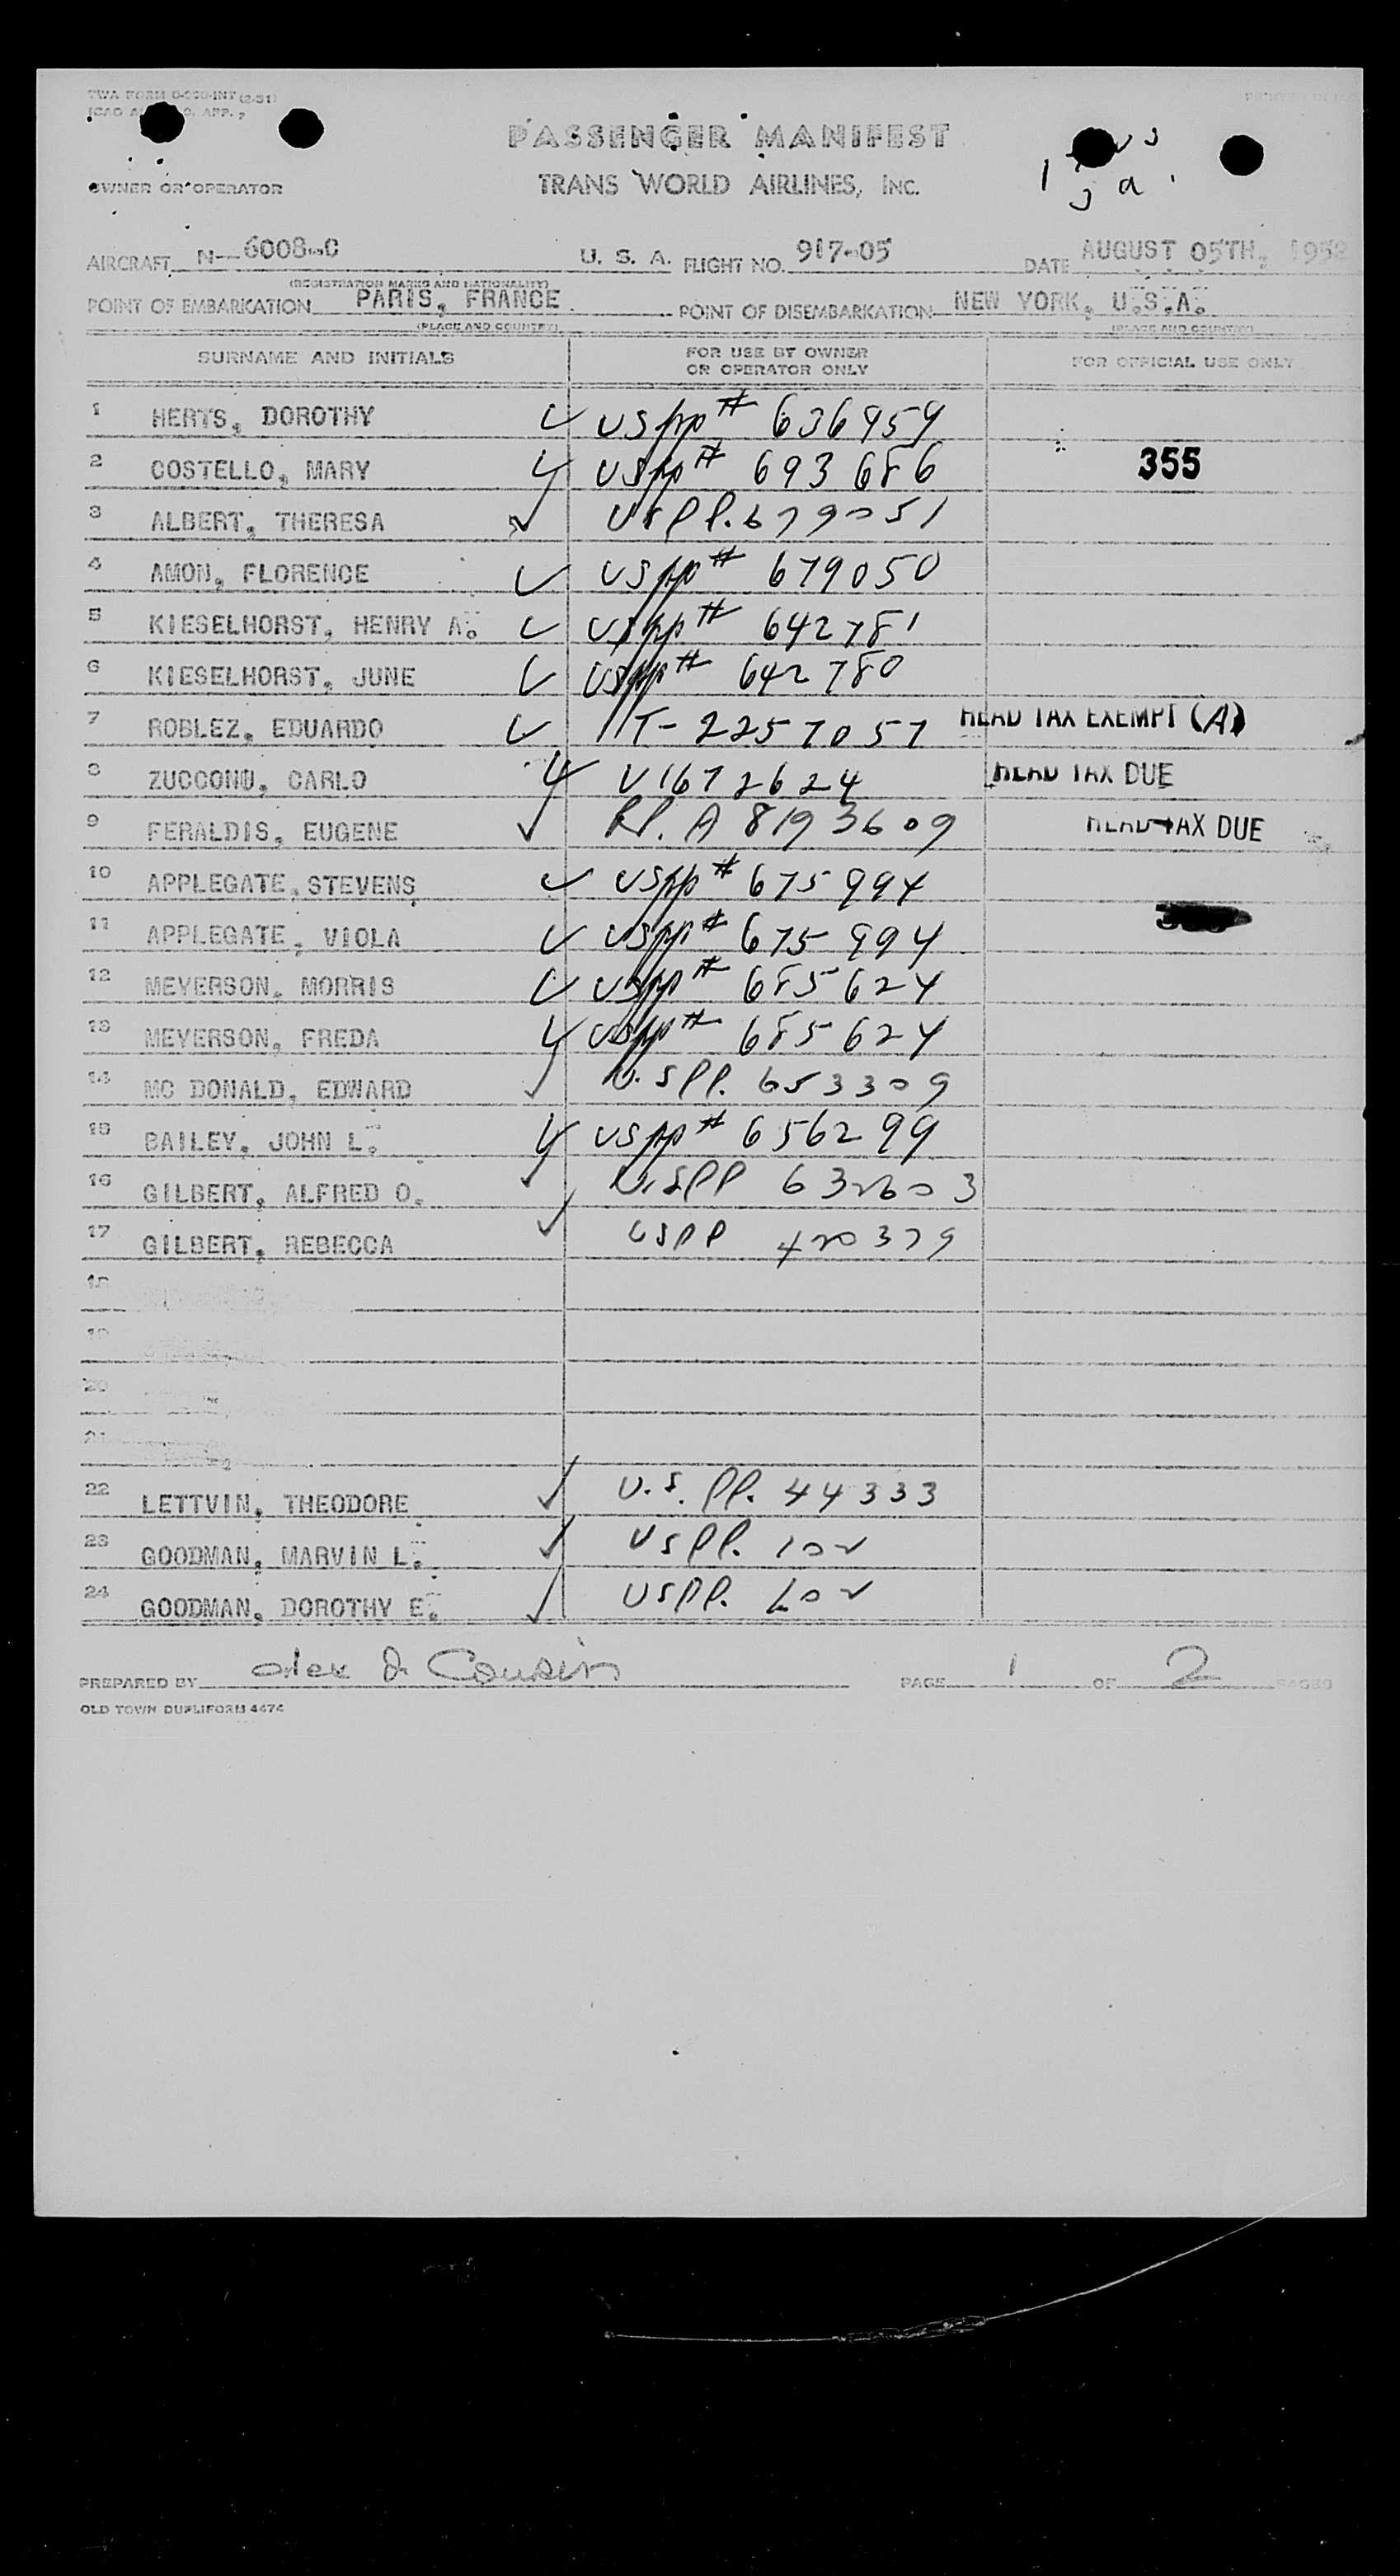 TWA FORM O-500-INT (2-51)
PASSENGER MANIFEST
OWNER OR OPERATOR
TRANS WORLD AIRLINES, INC.
AIRCRAFT N-6008-C U. S. A. FLIGHT NO. 917-05 DATE AUGUST 05TH, 1952
(REGISTRATION MARKS AND NATIONALITY)
POINT OF EMBARKATION PARIS, FRANCE POINT OF DISEMBARKATION NEW YORK, U.S.A.
(PLACE AND COUNTRY) (PLACE AND COUNTRY)
SURNAME AND INITIALS FOR USE BY OWNER OR OPERATOR ONLY FOR OFFICIAL USE ONLY
1 HERTS, DOROTHY ✓ USpp# 636959
2 COSTELLO, MARY ✓ USpp# 693686 355
3 ALBERT, THERESA ✓ USPP. 679051
4 AMON, FLORENCE ✓ USpp# 679050
5 KIESELHORST, HENRY A. ✓ USpp# 642781
6 KIESELHORST, JUNE ✓ USpp# 642780
7 ROBLEZ, EDUARDO ✓ T-2257057 HEAD TAX EXEMPT (A)
8 ZUCCONO, CARLO ✓ V1672624 HEAD TAX DUE
9 FERALDIS, EUGENE ✓ RP. A 8193609 HEAD TAX DUE
10 APPLEGATE, STEVENS ✓ USpp# 675994
11 APPLEGATE, VIOLA ✓ USpp# 675994
12 MEYERSON, MORRIS ✓ USpp# 685624
13 MEYERSON, FREDA ✓ USpp# 685624
14 MC DONALD, EDWARD ✓ U.SPP. 653309
15 BAILEY, JOHN L. ✓ USpp# 656299
16 GILBERT, ALFRED O. ✓ U.SPP 632603
17 GILBERT, REBECCA ✓ USPP 420379
18
19
20
21
22 LETTVIN, THEODORE ✓ U.S. PP. 44333
23 GOODMAN, MARVIN L. ✓ USPP. 102
24 GOODMAN, DOROTHY E. ✓ USPP. 102
PREPARED BY Alex J. Cousin PAGE 1 OF 2 PAGES
OLD TOWN DUPLIFORM 4474